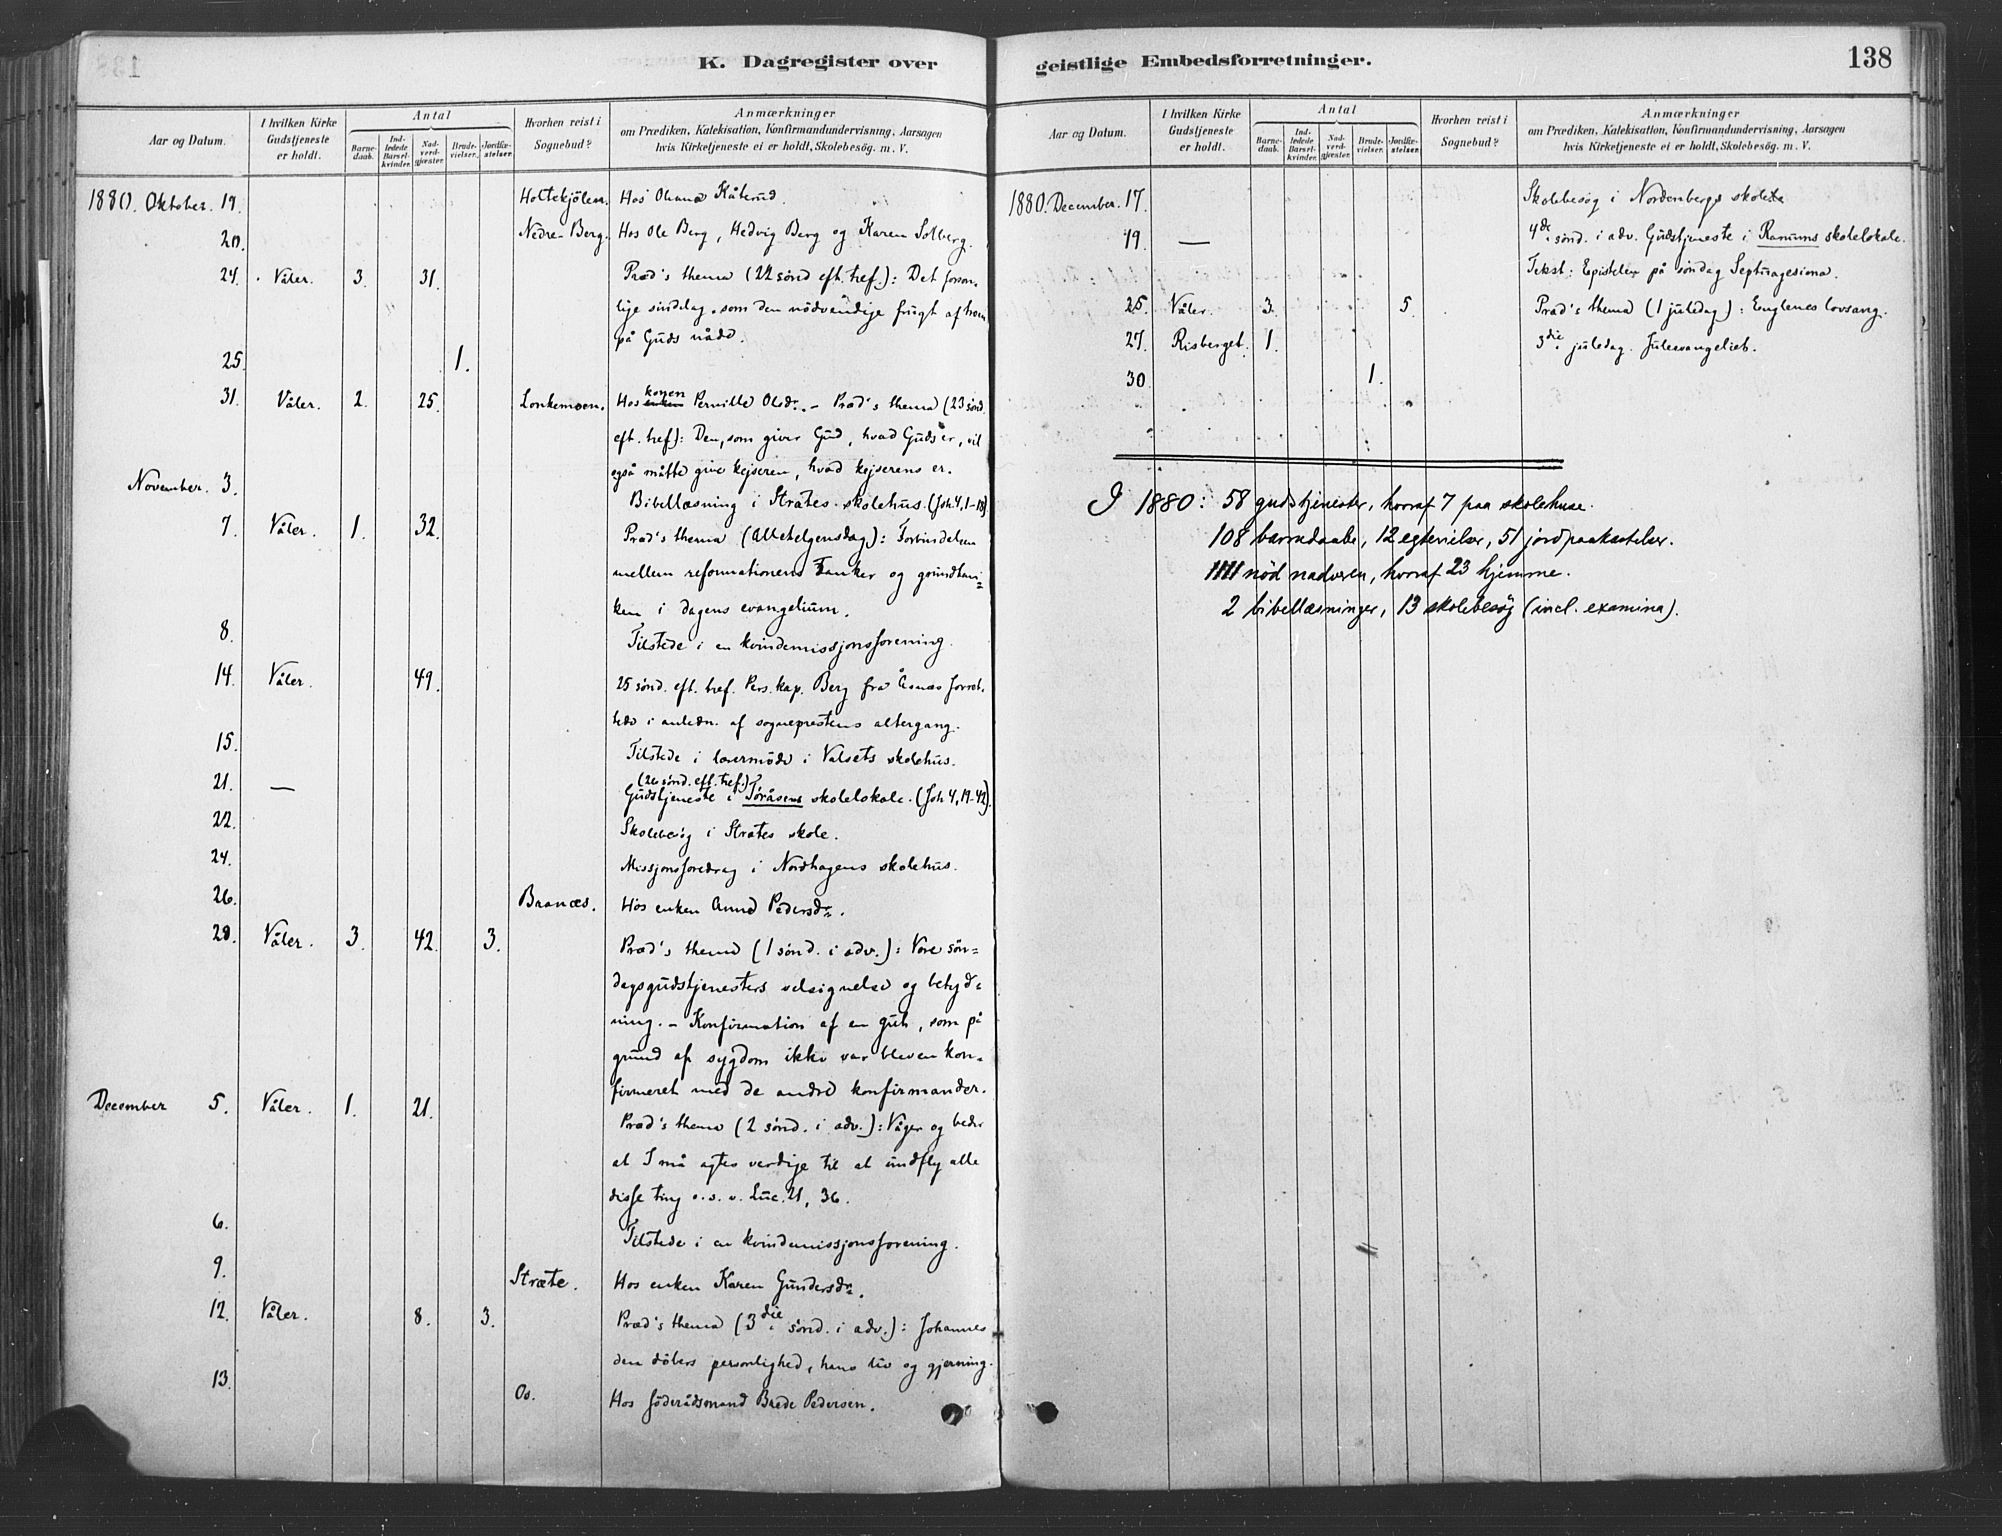 K. Dagregister over
Aar og Datum.
I hvilken Kirke Gudstjeneste er holdt.
Antal
Barnedaab.
Indledede Barselkvinder.
Nadverdgjester.
Brudevielser.
Jordfæstelser.
Hvorhen reist i Sognebud?
Anmærkninger
om Prædiken, Katekisation, Konfirmandundervisning, Aarsagen
hvis Kirketjeneste ei er holdt, Skolebesøg. m. V.
1880. Oktober. 19. Holtekjölen. Hos Oleana Kåterud.
20. Nedre-Berg. Hos Ole Berg, Hedvig Berg og Karen Solberg.
24. Våler. 3. 31. Præd's thema (22 sönd eft. tref.): Det forson-
lige sindelag som den nödvendige frugt af troen
på Guds nåde.
25. 1.
31. Våler. 2. 25. Lonkemoen. Hos enken konen Pernille Olsdr. - Præd's thema (23 sönd.
eft. tref): Den, som giver Gud, hvad Guds er, vil
også måtte give kejseren, hvad kejserens er.
November. 3. Bibellæsning i Strætes skolehus. (Joh. 4, 1-18)
7. Våler. 1. 32. Præd's thema (Allehelgensdag): Forbindelsen
mellem reformationens tanker og grundtan-
ken i dagens evangelium.
8. Tilstede i en kvindemissjonsforening.
14. Våler. 49. 25 sönd. eft. tref. Pers. kap. Berg fra Åsnæs forret-
tede i anledn. af sogneprestens altergang.
15. Tilstede i lærermöde i Valsets skolehus.
21. — (26 sönd. eft. tref.)
Gudstjeneste i Toråsens skolelokale. (Joh 4, 19-42).
22. Skolebesög i Strætes skole.
24. Missjonsforedrag i Nordhagens skolehus.
26. Braanæs. Hos enken Anne Pedersdr.
28. Våler. 3. 42. 3. Præd's thema (1 sönd. i adv.): Vore sön-
dagsgudstjenesters velsignelse og betyd-
ning. - Konfirmation af en gut, som på
grund af sygdom ikke var bleven kon-
firmeret med de andre konfirmander.
December 5. Våler. 1. 21. Præd's thema (2 sönd. i adv.): Våger og beder
at I må agtes værdige til at undfly alle
disse ting o. s. v. Luc. 21, 36.
6. Tilstede i en kvindemissjonsforening.
9. Stræte. Hos enken Karen Gundersdr.
12. Våler. 8. 3. Præd's thema (3die sönd. i adv.): Johannes
den döbers personlighed, hans liv og gjerning.
13. Os. Hos föderådsmand Brede Pedersen.
geistlige Embedsforretninger.
138
Aar og Datum.
I hvilken Kirke Gudstjeneste er holdt.
Antal
Barnedaab.
Indledede Barselkvinder.
Nadverdgjester.
Brudevielser.
Jordfæstelser.
Hvorhen reist i Sognebud?
Anmærkninger
om Prædiken, Katekisation, Konfirmandundervisning, Aarsagen
hvis Kirketjeneste ei er holdt, Skolebesøg. m. V.
1880. December. 17. Skolebesög i Nordenbergs skole
19. — 4de sönd. i adv. Gudstjeneste i Ranums skolelokale.
Tekst: Epistelen på söndag Septuagesima.
25. Våler. 3. 5. Præd's thema (1 juledag): Englenes lovsang.
27. Risberget. 1. 3die juledag. Juleevangeliet.
30. 1.
I 1880: 58 gudstjenester, hvoraf 7 paa skolehuse.
108 barnedaabe, 12 egtevielser, 51 jordpaakastelser.
1111 nöd nadveren, hvoraf 23 hjemme.
2 bibellæsninger, 13 skolebesøg (incl. examina).